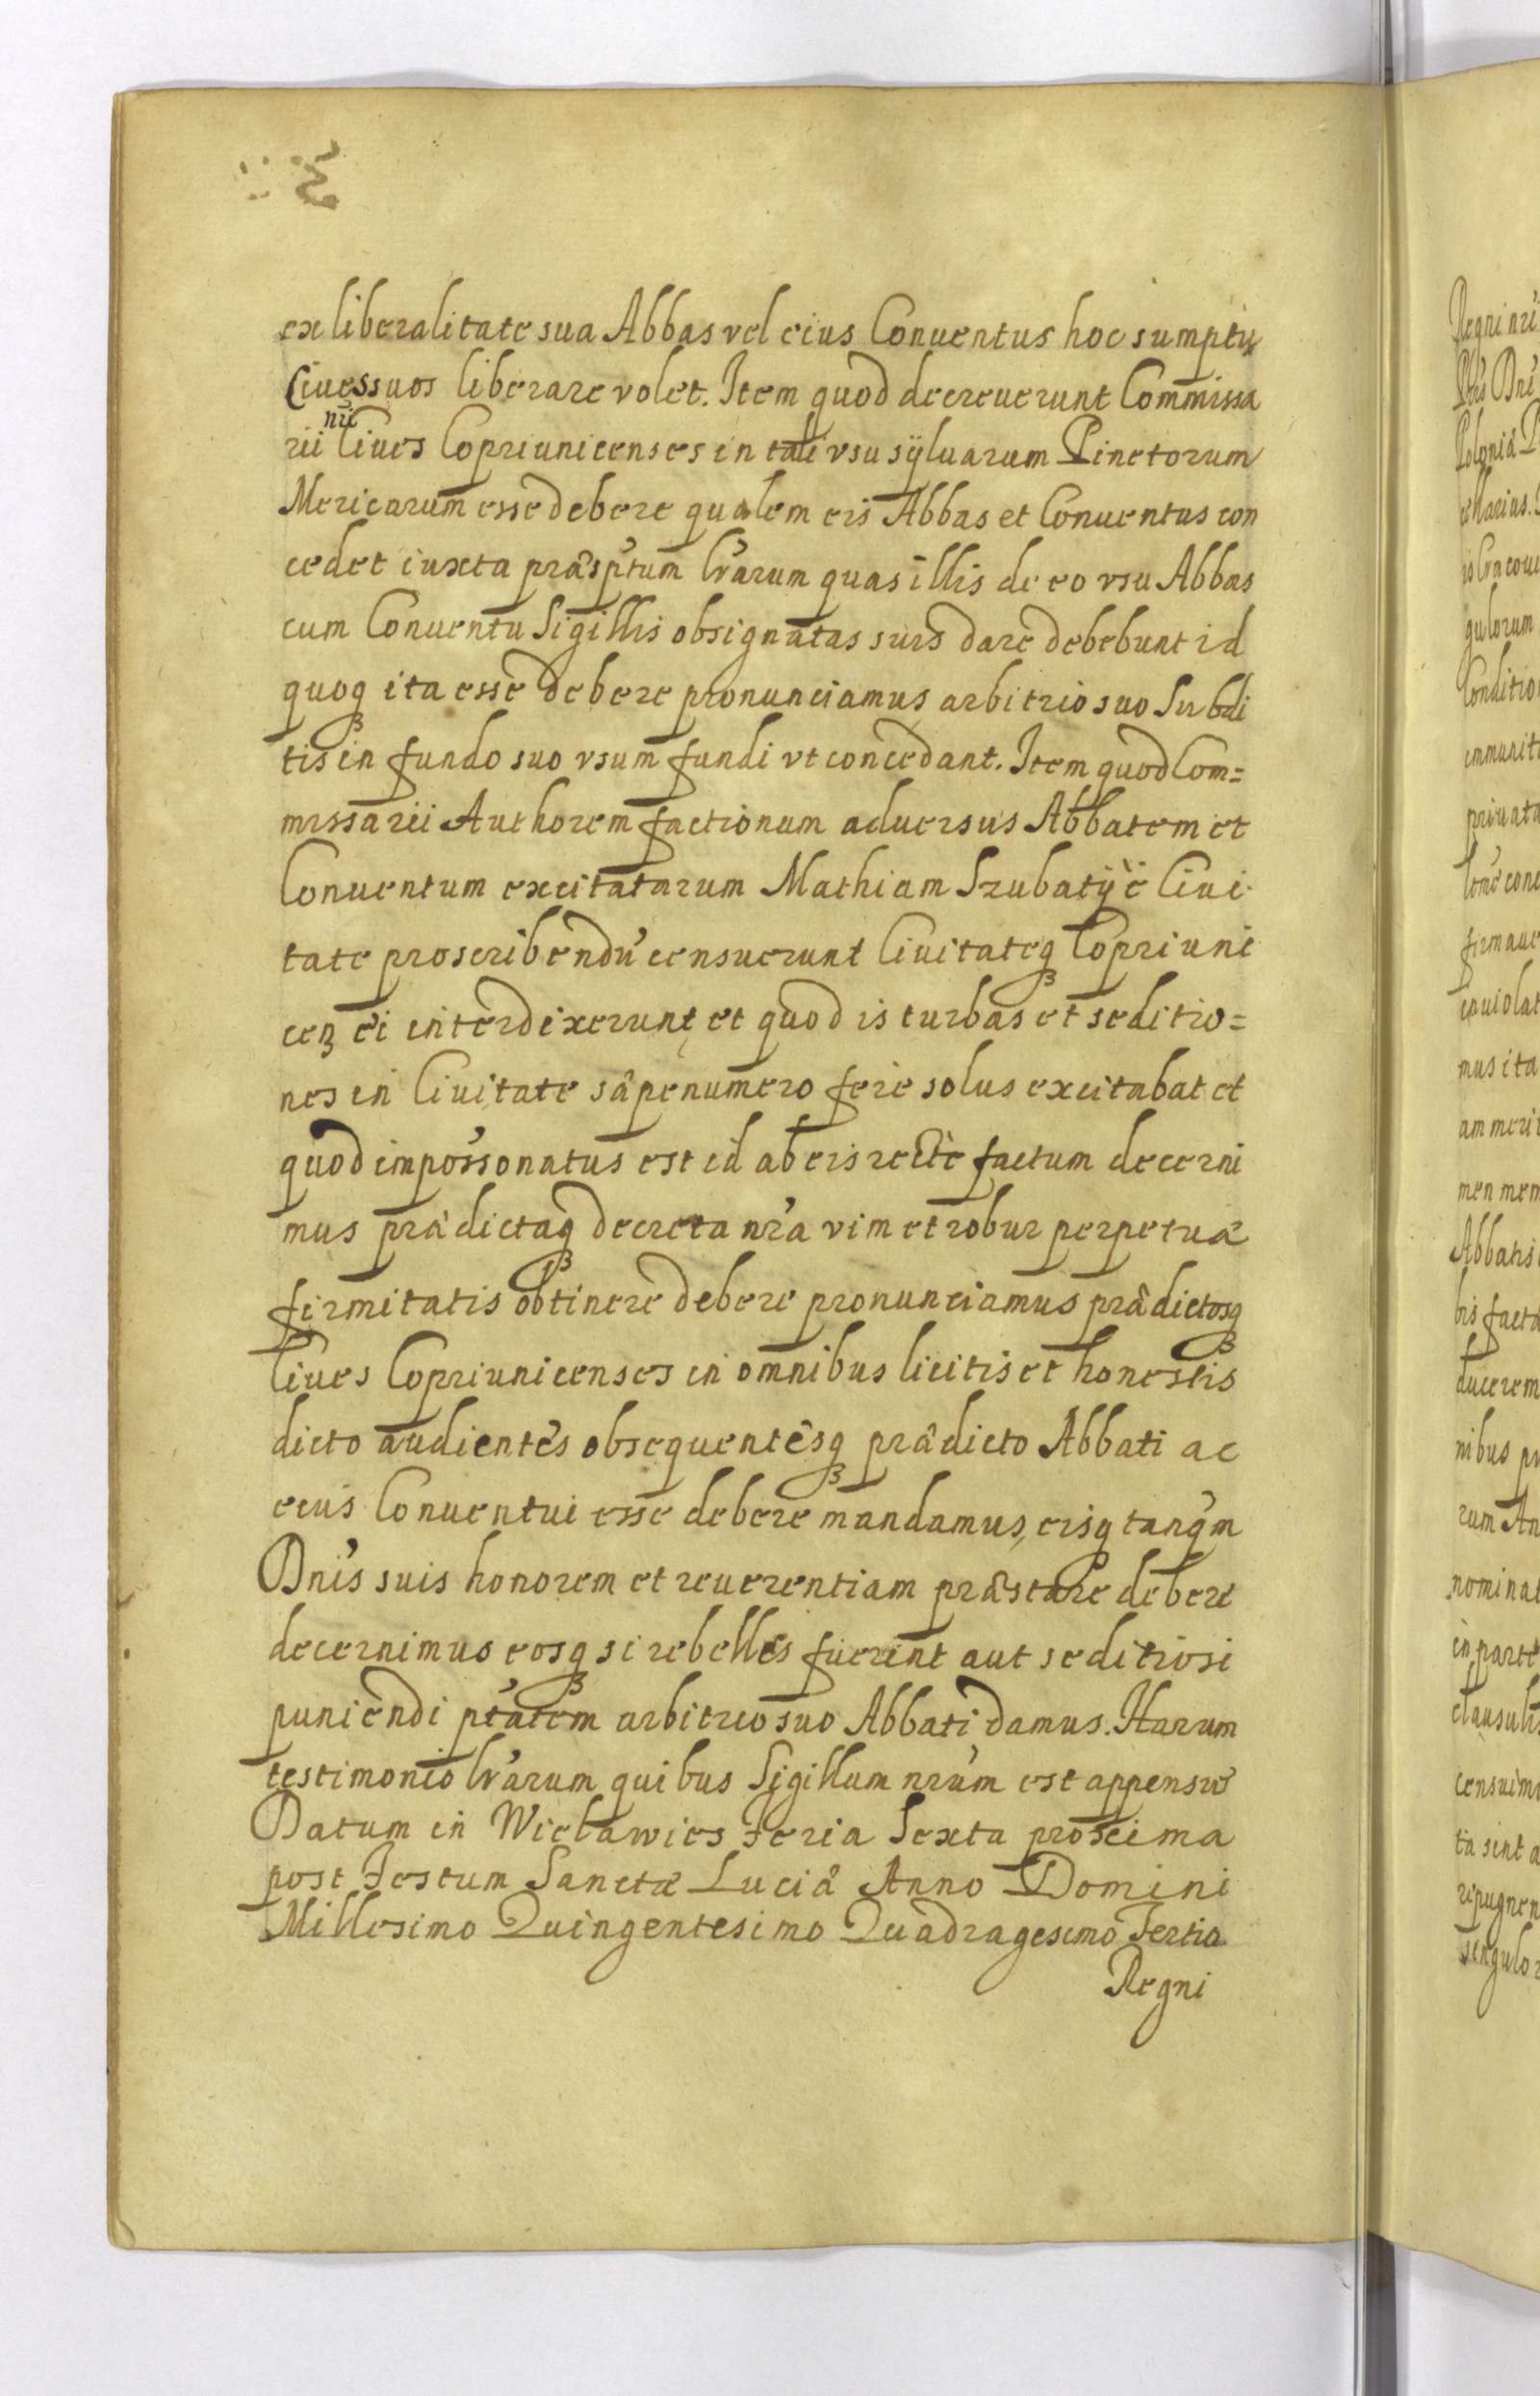 ex liberalitate sua Abbas vel eius Conuentus hoc sumptu
Ciues suos liberare volet. Item quod decreuerunt Commissa
nri
rii Ciues Copriunicenses in tali vsu syluarum Pinetorum
Mericarum esse debere qualem eis Abbas et Conuentus con
cedet iuxta prâsptum lrarum quas illis de eo vsu Abbas
cum Conuentu Sigillis obsignatas suis dare debebunt id
quoq ita esse debere pronunciamus arbitrio suo Subdi
tis in fundo suo vsum fundi vt concedant. Item quod Com=
missarii Authorem factionum aduersus Abbatem et
Conuentum excitatarum Mathiam Szubaty è Ciui
tate proscribendu censuerunt Ciuitateq Copriuni
cen ei interdixerunt, et quod is turbas et seditio=
nes in Ciuitate sâpenumero fere solus excitabat et
quod impossonatus est id ab eis recte factum decerni
mus prâdictaq decreta nra vim et robur perpetuâ
firmitatis obtinere debere pronunciamus prâdictosq
Ciues Copriunicenses in omnibus licitis et honestis
dicto audientes obsequentesq prâdicto Abbati ac
eius Conuentui esse debere mandamus, eisq tanqm
Dnis suis honorem et reuerentiam prâstare debere
decernimus eosq si rebelles fuerint aut seditiosi
puniendi ptatem arbitrio suo Abbati damus. Harum
testimonio lrarum quibus Sigillum nrum est appensu
Datum in Wislawies Feria Sexta proxima
post Festum Sanctæ Luciâ Anno Domini
Millesimo Quingentesimo Quadragesimo Tertio
Regni